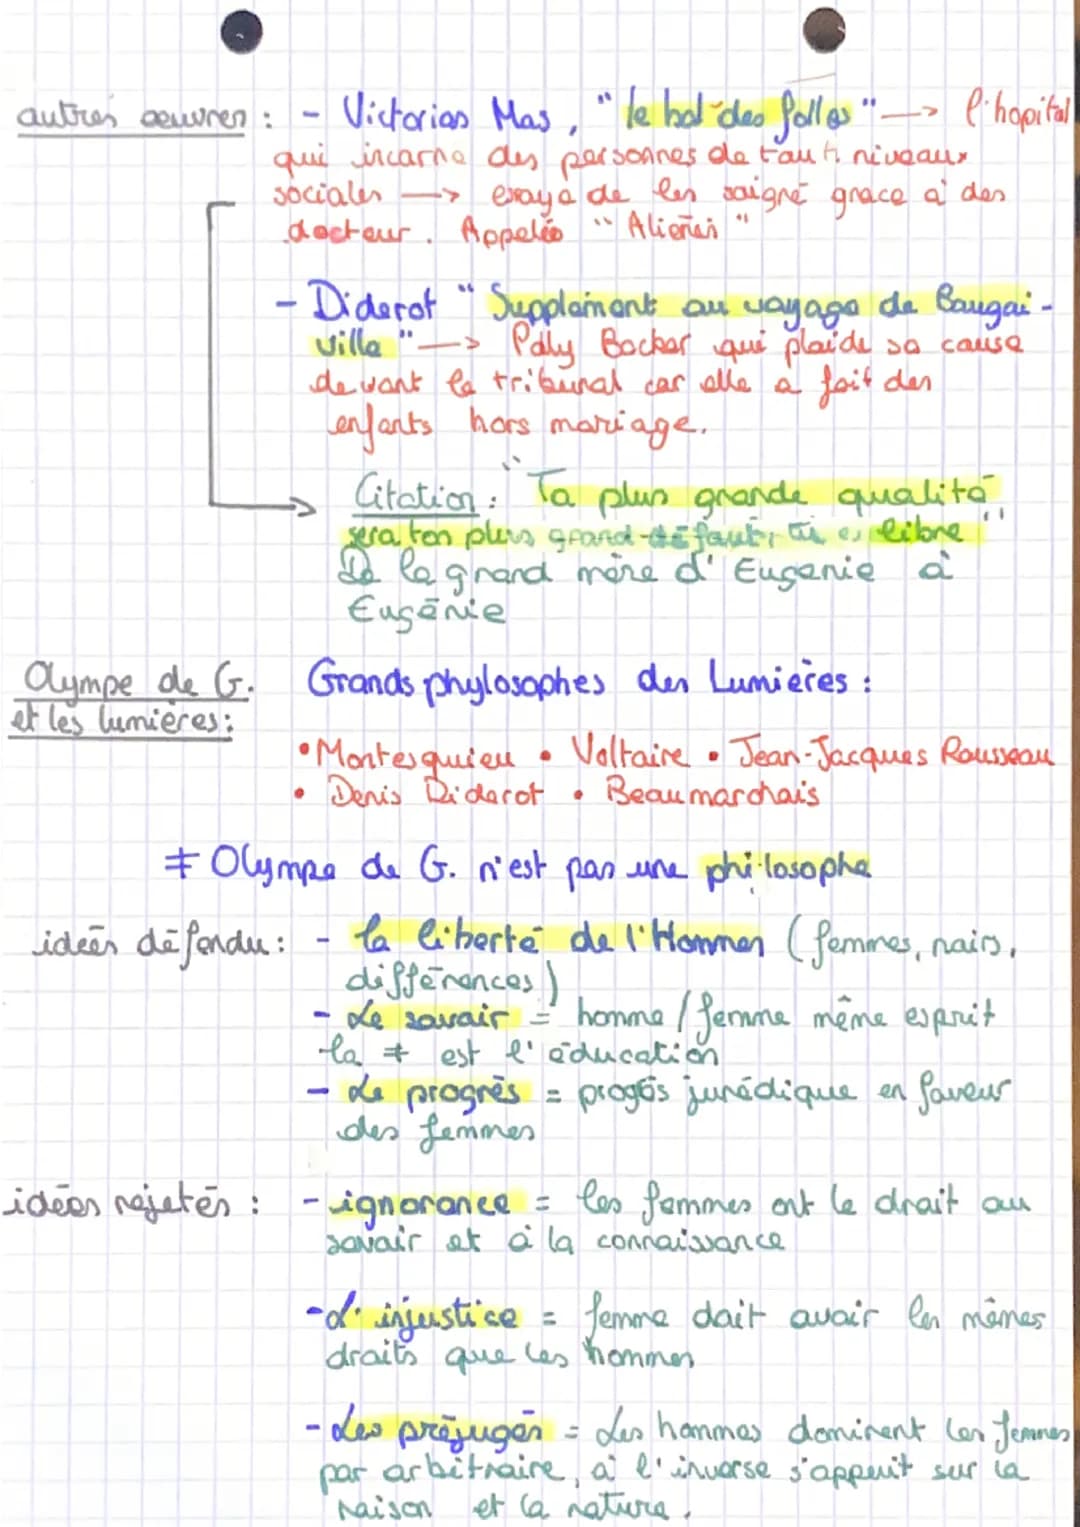 autres œuvres : - Victorias Mas, "le bal des folles" → l'hopital
qui incarne des personnes de tout niveaux
sociales → essaye de les soigné grace à des
docteur. Appelée "Aliénés"
- Diderot "Supplément au voyage de Bougai-
ville" → Polly Backer qui plaide sa cause
devant le tribunal car elle a fait des
enfants hors mariage.
Citation : "Ta plus grande qualité
sera ton plus grand défaut, tu es libre"
De la grand mère d'Eugenie à
Eugénie
Olympe de G. Grands phylosophes des Lumières :
et les lumières :
• Montesquieu • Voltaire • Jean-Jacques Rousseau
• Denis Diderot • Beaumarchais
≠ Olympe de G. n'est pas une philosophe
idées défendu : - la liberté de l'Hommes (femmes, noirs,
différences)
- Le savoir = homme / femme même esprit
la ≠ est l'éducation
- Le progrès = progés jurédique en faveur
des femmes
idées rejetés : - ignorance = les femmes ont le droit au
savoir et à la connaissance
- L'injustice = femme doit avoir les mêmes
droits que les hommes
- Les préjugés = Les hommes dominent les femmes
par arbitraire, à l'inverse s'appuit sur la
raison et la nature.